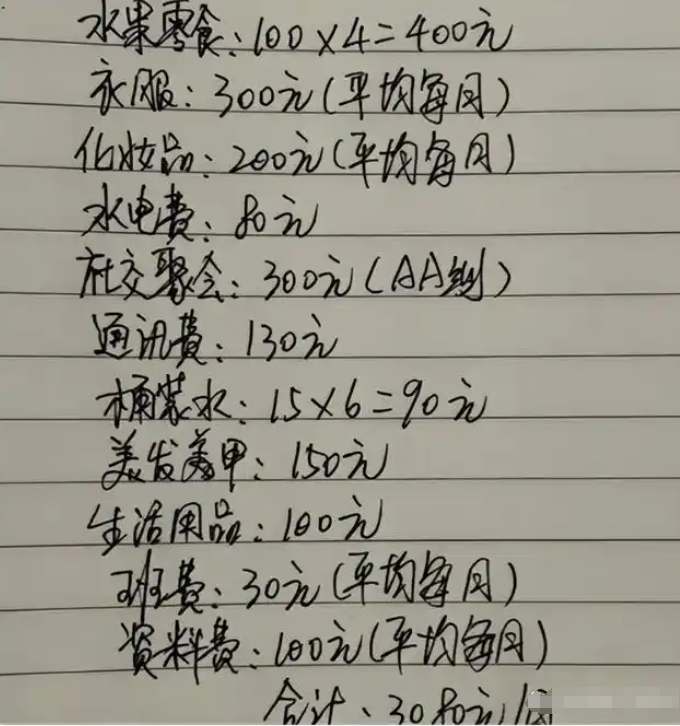 水果零食：100×4=400元
衣服：300元(平均每月)
化妆品：200元(平均每月)
水电费：80元
社交聚会：300元(AA制)
通讯费：130元
桶装水：15×6=90元
美发美甲：150元
生活用品：100元
班费：30元(平均每月)
资料费：100元(平均每月)
合计：3080元/